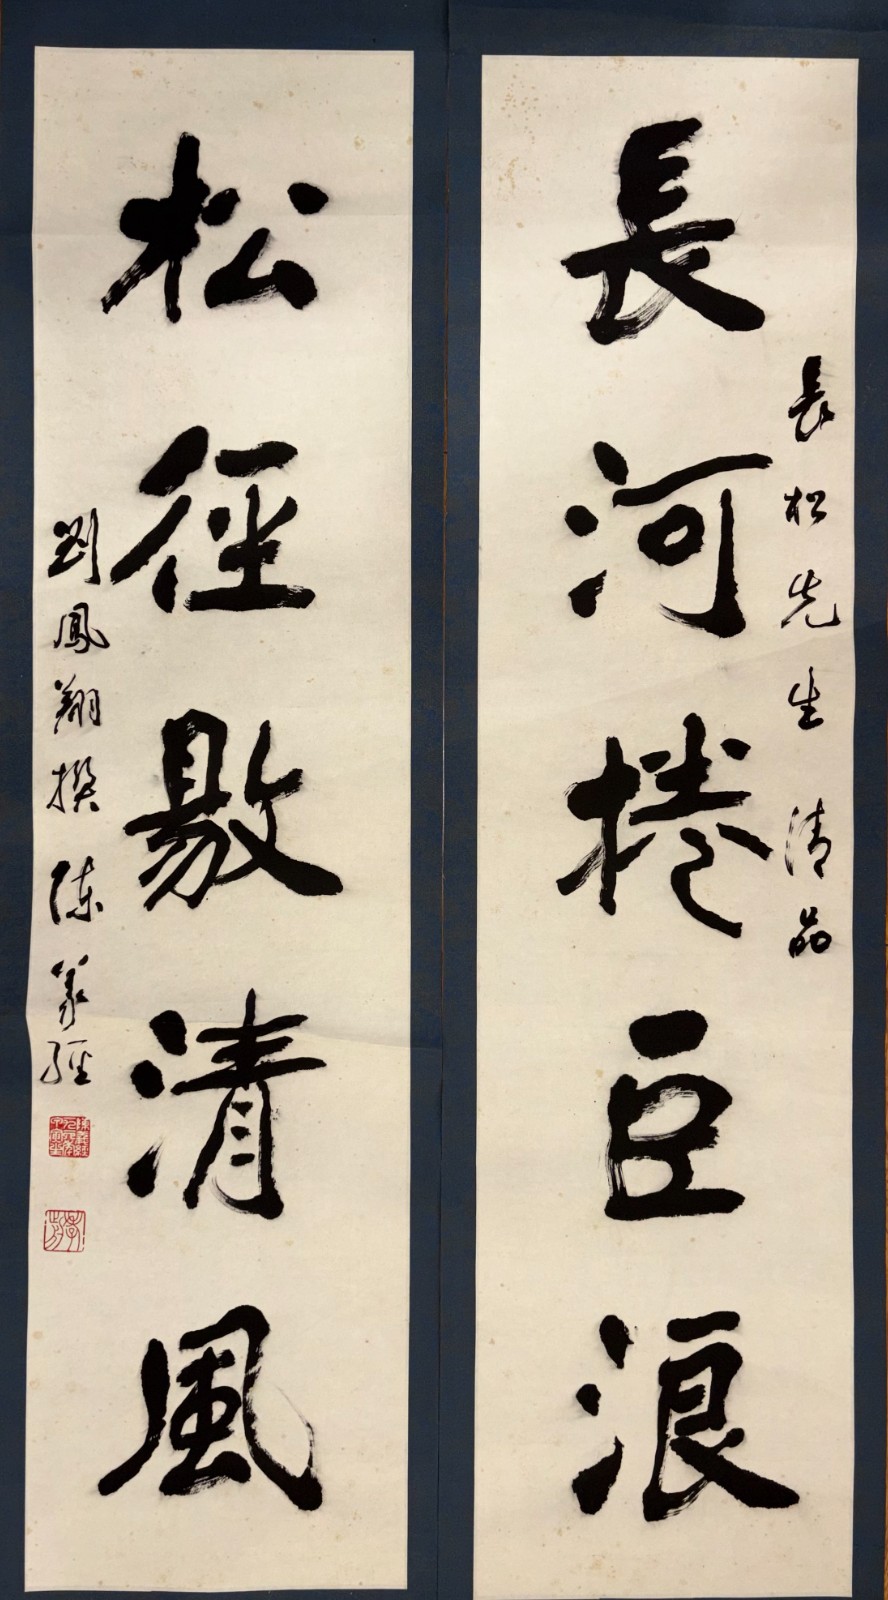 長松先生清品
長河捲巨浪
松徑敭清風
劉鳳翔撰 陳義經